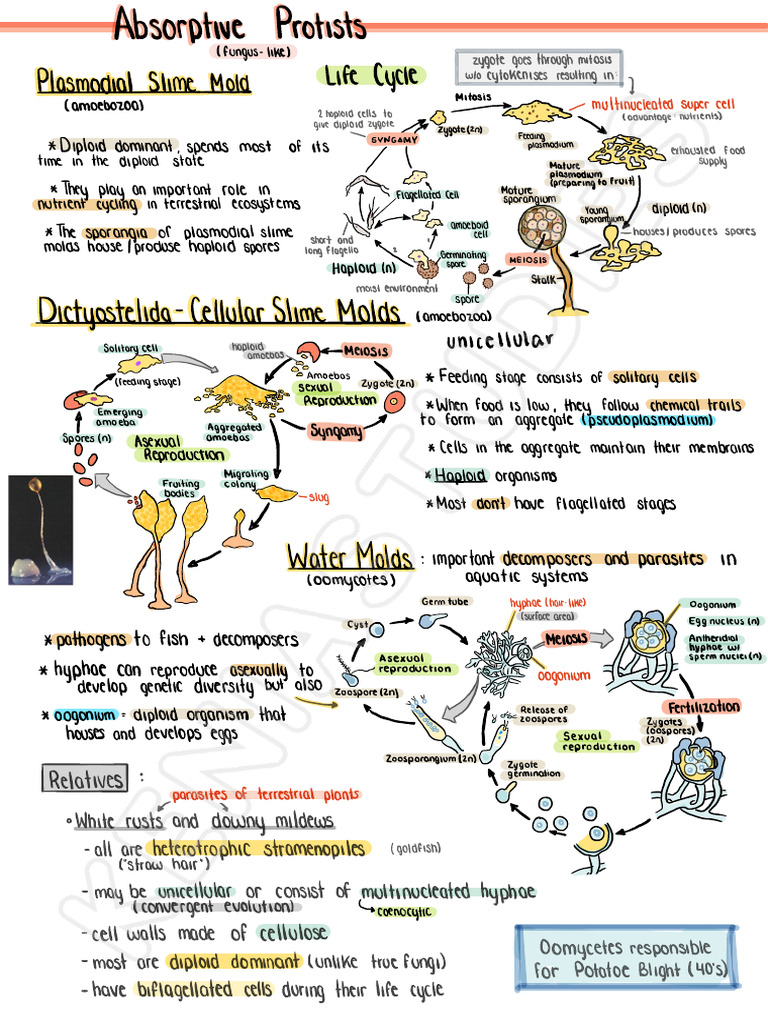 Absorptive Protists
(fungus-like)
Plasmodial Slime Mold
(amoebozoa)
* Diploid dominant, spends most of its
time in the diploid state
* They play an important role in
nutrient cycling in terrestrial ecosystems
* The sporangia of plasmodial slime
molds house/produse haploid spores
Life Cycle
zygote goes through mitosis
w/o cytokenises resulting in:
2 haploid cells to
give diploid zygote
SYNGAMY
Mitosis
Zygote (2n)
Feeding
plasmodium
multinucleated super cell
(advantage: nutrients)
exhausted food
supply
Mature
plasmodium
(preparing to fruit)
Mature
sporangium
Young
sporangium
diploid (n)
houses/produces spores
Flagellated cell
amoeboid
cell
short and
long flagella
Haploid (n)
2
2
Germinating
spore
moist environment
spore
MEIOSIS
Stalk
Dictyostelida - Cellular Slime Molds
(amoebozoa)
Solitary cell
(feeding stage)
Emerging
amoeba
Spores (n)
Asexual
Reproduction
haploid
amoebas
Amoebas
MEIOSIS
Sexual
Reproduction
Zygote (2n)
Syngamy
Aggregated
amoebas
Fruiting
bodies
Migrating
colony
slug
unicellular
* Feeding stage consists of solitary cells
* When food is low, they follow chemical trails
to form an aggregate (pseudoplasmodium)
* Cells in the aggregate maintain their membrains
* Haploid organisms
* Most don't have flagellated stages
Water Molds : important decomposers and parasites in
(oomycetes)
aquatic systems
* pathogens to fish + decomposers
* hyphae can reproduce asexually to
develop genetic diversity but also
* oogonium = diploid organism that
houses and develops eggs
Germ tube
Cyst
Asexual
reproduction
Zoospore (2n)
Zoosporangium (2n)
hyphae (hair-like)
(surface area)
MEIOSIS
oogonium
Release of
zoospores
Sexual
reproduction
Zygote
germination
Oogonium
Egg nucleus (n)
Antheridial
hyphae w/
sperm nuclei (n)
Fertilization
Zygotes
(oospores)
(2n)
Relatives :
parasites of terrestrial plants
° White rusts and downy mildews
- all are heterotrophic stramenopiles (goldfish)
("straw hair")
- may be unicellular or consist of multinucleated hyphae
(convergent evolution)
coenocytic
- cell walls made of cellulose
- most are diploid dominant (unlike true fungi)
- have biflagellated cells during their life cycle
Oomycetes responsible
for Potatoe Blight (40's)
KENIASTUDIES